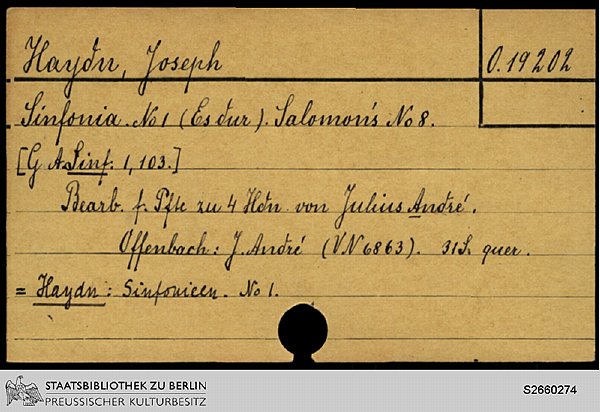 Haydn, Joseph
O. 19202
Sinfonia. No 1 (Es dur). Salomon's No 8.
[G A. Sinf. 1, 103.]
Bearb. f. Pfte zu 4 Hdn von Julius André.
Offenbach: J. André (VN 6863). 31 S. quer.
= Haydn: Sinfonieen. No 1.
STAATSBIBLIOTHEK ZU BERLIN
PREUSSISCHER KULTURBESITZ
S2660274